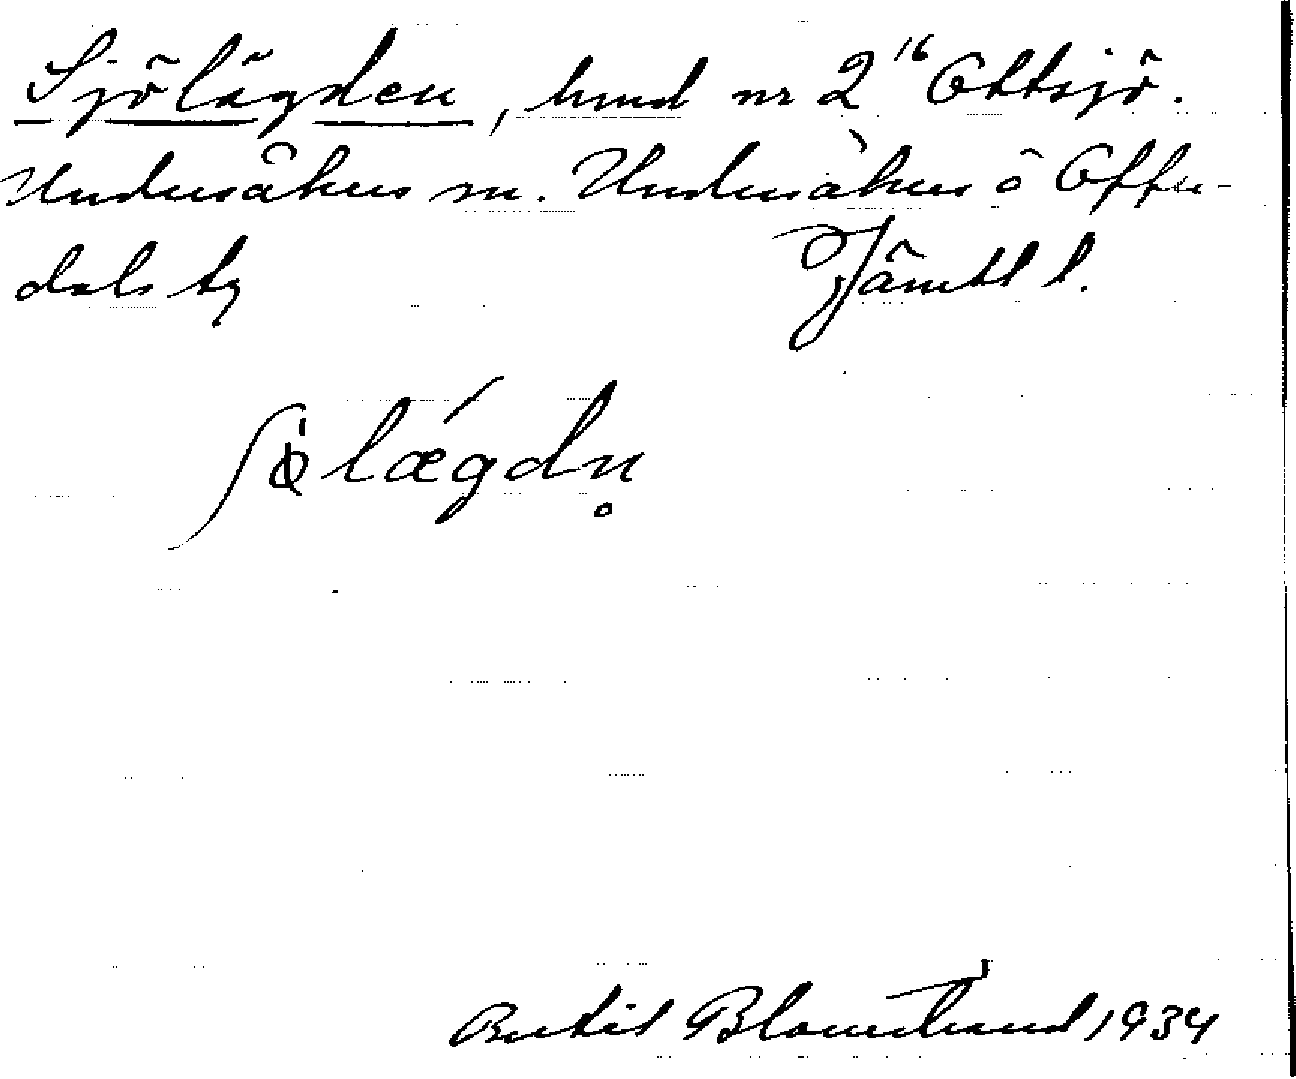 Sjölägden, hmd nr 2¹⁶ Ottsjö.
Undersåkers sn. Undersåkers o Offer-
dals tg Jämtl l.
ʃǿlǽgdn̥
Bertil Blomstrand 1934